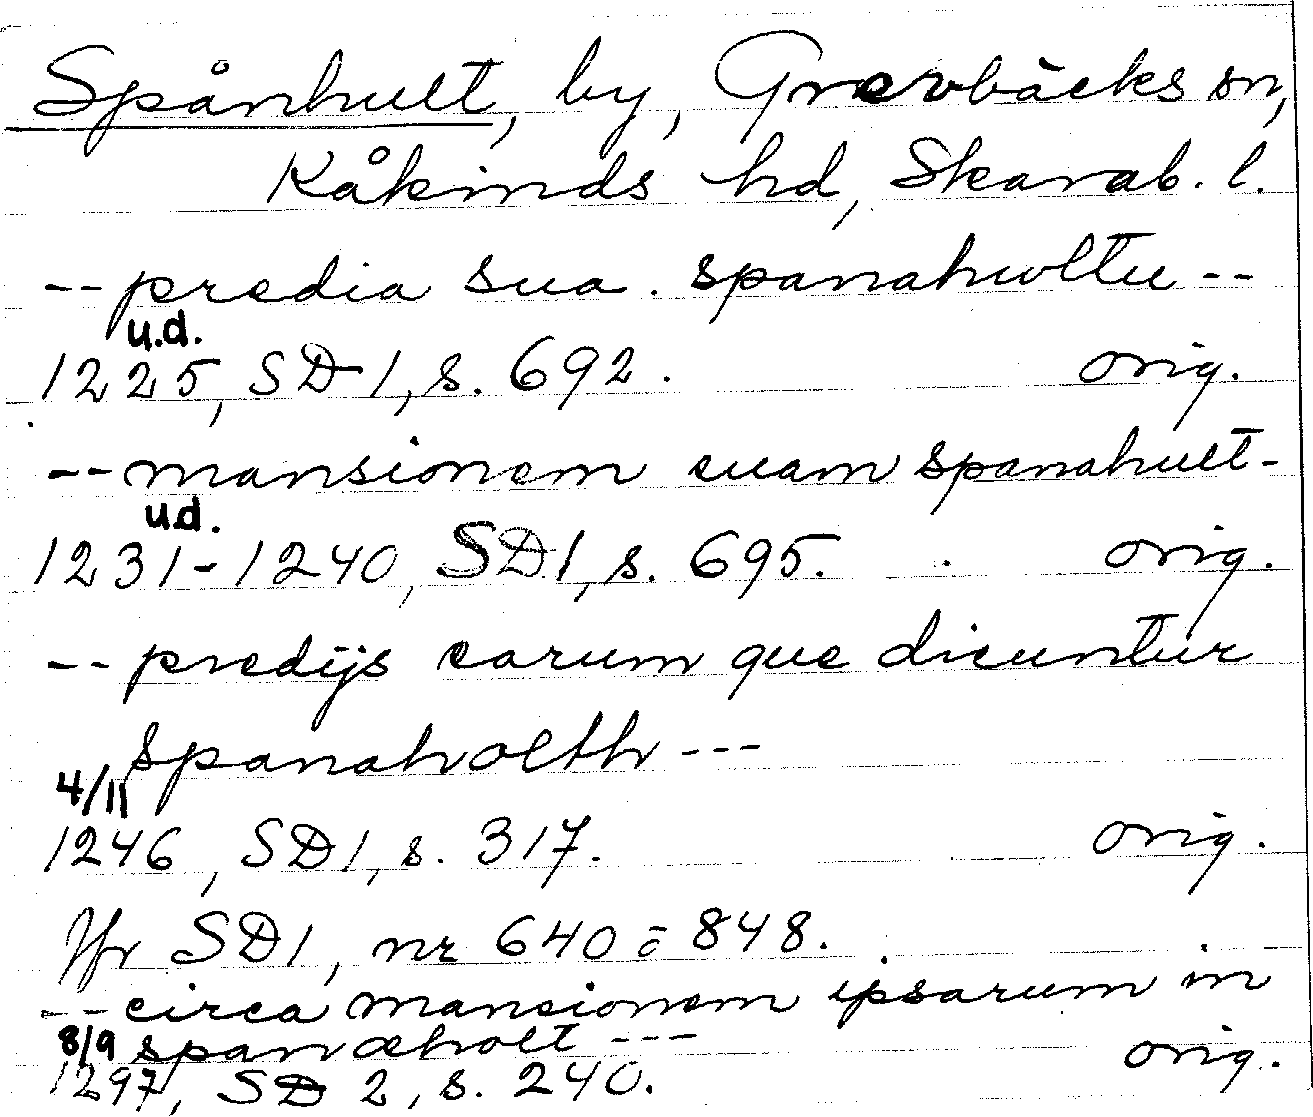 Spånhult, by, Grevbäcks sn,
Kåkinds hd, Skarab. l.
-- predia sua. spanahultu --
u.d.
1225, SD 1, s. 692. orig.
-- mansionem suam spanahult -
u.d.
1231-1240, SD 1, s. 695. orig.
-- predijs earum que dicuntur
spanaholth ---
4/11
1246, SD 1, s. 317. orig.
Jfr SD 1, nr 640 o 848.
-- circa mansionem ipsarum in
8/9 spanæholt ---
1297, SD 2, s. 240. orig.